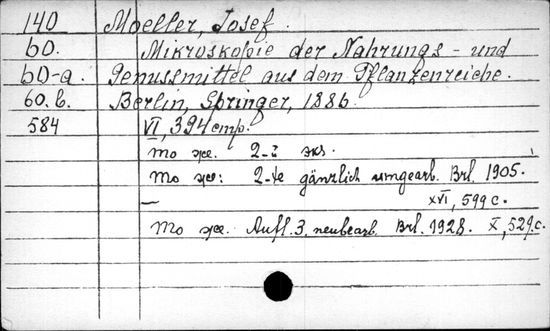 140 Moeller, Josef.
60. Mikroskopie der Nahrungs- und
60-a. Genussmittel aus dem Pflanzenreiche.
60.b. Berlin, Springer, 1886.
584 VI, 394 стр.
То же. 2-й экз.
То же: 2-te gänzlich umgearb. Brl. 1905.
— XVI, 599 с.
То же. Aufl. 3, neubearb. Brl. 1928. X, 529 с.